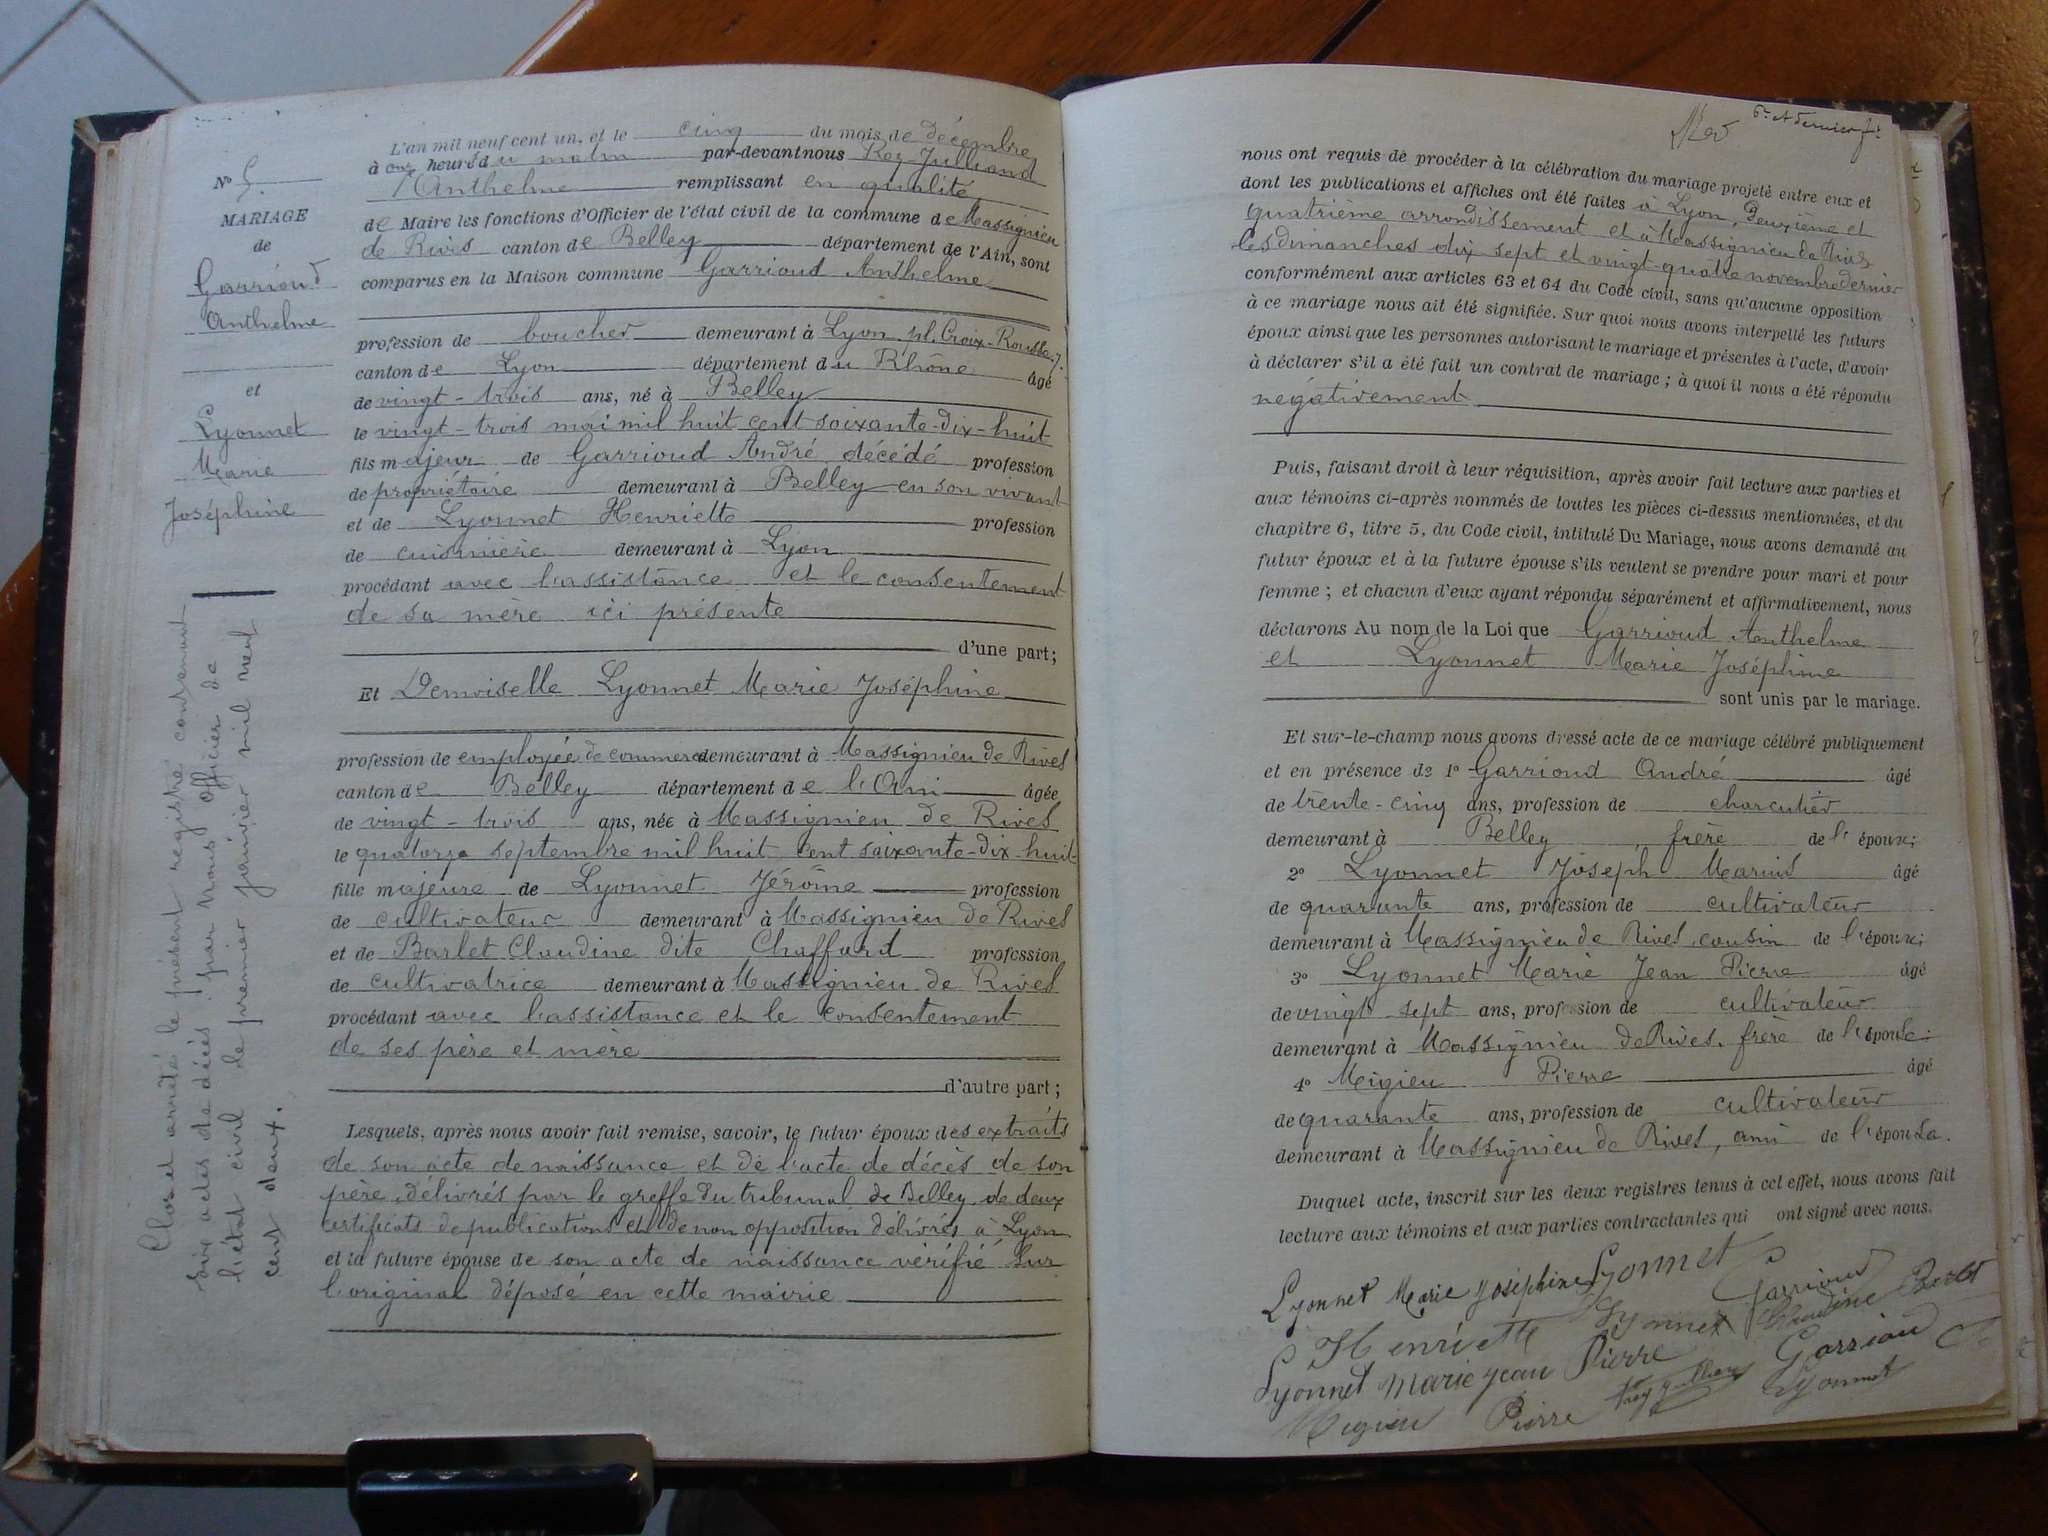 L'an mil neuf cent un, et le cinq du mois de décembre
à onze heures du matin par-devant nous Rey Julliand
Anthelme remplissant en qualité
de Maire les fonctions d'Officier de l'état civil de la commune de Massignieu
de Rives canton de Belley département de l'Ain, sont
comparus en la Maison commune Garrioud Anthelme
profession de boucher demeurant à Lyon, pl. Croix-Rousse, 7.
canton de Lyon département du Rhône âgé
de vingt-trois ans, né à Belley
le vingt-trois mai mil huit cent soixante-dix-huit
fils majeur de Garrioud André décédé profession
de propriétaire demeurant à Belley en son vivant
et de Lyonnet Henriette profession
de cuisinière demeurant à Lyon
procédant avec l'assistance et le consentement
de sa mère ici présente
d'une part;
Et Demoiselle Lyonnet Marie Joséphine
profession de employée de commerce demeurant à Massignieu de Rives
canton de Belley département de l'Ain âgée
de vingt-trois ans, née à Massignieu de Rives
le quatorze septembre mil huit cent soixante-dix-huit
fille majeure de Lyonnet Jérôme profession
de cultivateur demeurant à Massignieu de Rives
et de Barlet Claudine dite Chaffard profession
de cultivatrice demeurant à Massignieu de Rives
procédant avec l'assistance et le consentement
de ses père et mère
d'autre part;
Lesquels, après nous avoir fait remise, savoir, le futur époux des extraits
de son acte de naissance et de l'acte de décès de son
père, délivrés par le greffe du tribunal de Belley, de deux
certificats de publications et de non opposition délivrés à Lyon
et la future épouse de son acte de naissance vérifié sur
l'original déposé en cette mairie
N° 5
MARIAGE
de
Garrioud
Anthelme
et
Lyonnet
Marie
Joséphine
Clos et arrêté le présent registre contenant
six actes de décès par nous Officier de
l'état civil le premier janvier mil neuf
cent deux.
6e et dernier ft
nous ont requis de procéder à la célébration du mariage projeté entre eux et
dont les publications et affiches ont été faites à Lyon, deuxième et
quatrième arrondissement et à Massignieu de Rives
les dimanches dix sept et vingt-quatre novembre dernier
conformément aux articles 63 et 64 du Code civil, sans qu'aucune opposition
à ce mariage nous ait été signifiée. Sur quoi nous avons interpellé les futurs
époux ainsi que les personnes autorisant le mariage et présentes à l'acte, d'avoir
à déclarer s'il a été fait un contrat de mariage; à quoi il nous a été répondu
négativement
Puis, faisant droit à leur réquisition, après avoir fait lecture aux parties et
aux témoins ci-après nommés de toutes les pièces ci-dessus mentionnées, et du
chapitre 6, titre 5, du Code civil, intitulé Du Mariage, nous avons demandé au
futur époux et à la future épouse s'ils veulent se prendre pour mari et pour
femme; et chacun d'eux ayant répondu séparément et affirmativement, nous
déclarons Au nom de la Loi que Garrioud Anthelme
et Lyonnet Marie Joséphine
sont unis par le mariage.
Et sur-le-champ nous avons dressé acte de ce mariage célébré publiquement
et en présence de 1° Garrioud André âgé
de trente-cinq ans, profession de charcutier
demeurant à Belley, frère de l'époux;
2° Lyonnet Joseph Marius âgé
de quarante ans, profession de cultivateur
demeurant à Massignieu de Rives, cousin de l'époux;
3° Lyonnet Marie Jean Pierre âgé
de vingt-sept ans, profession de cultivateur
demeurant à Massignieu de Rives, frère de l'épouse;
4° Migieu Pierre âgé
de quarante ans, profession de cultivateur
demeurant à Massignieu de Rives, ami de l'épouse.
Duquel acte, inscrit sur les deux registres tenus à cet effet, nous avons fait
lecture aux témoins et aux parties contractantes qui ont signé avec nous.
Lyonnet Marie Joséphine Lyonnet Garrioud
Henriette Lyonnet Claudine Barlet
Lyonnet Marie Jean Pierre Garrioud
Migieu Pierre Rey Julliand Lyonnet